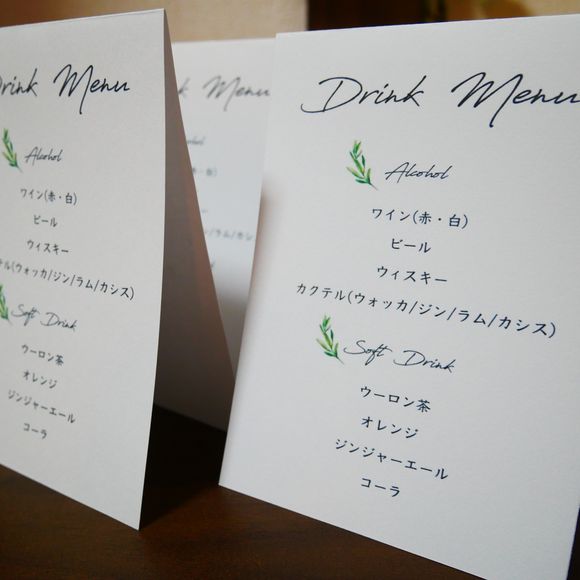 Drink Menu
Alcohol
ワイン(赤・白)
ビール
ウィスキー
テル(ウォッカ/ジン/ラム/カシス)
Soft Drink
ウーロン茶
オレンジ
ジンジャーエール
コーラ
Drink Menu
Drink Menu
Alcohol
ワイン(赤・白)
ビール
ウィスキー
カクテル(ウォッカ/ジン/ラム/カシス)
Soft Drink
ウーロン茶
オレンジ
ジンジャーエール
コーラ